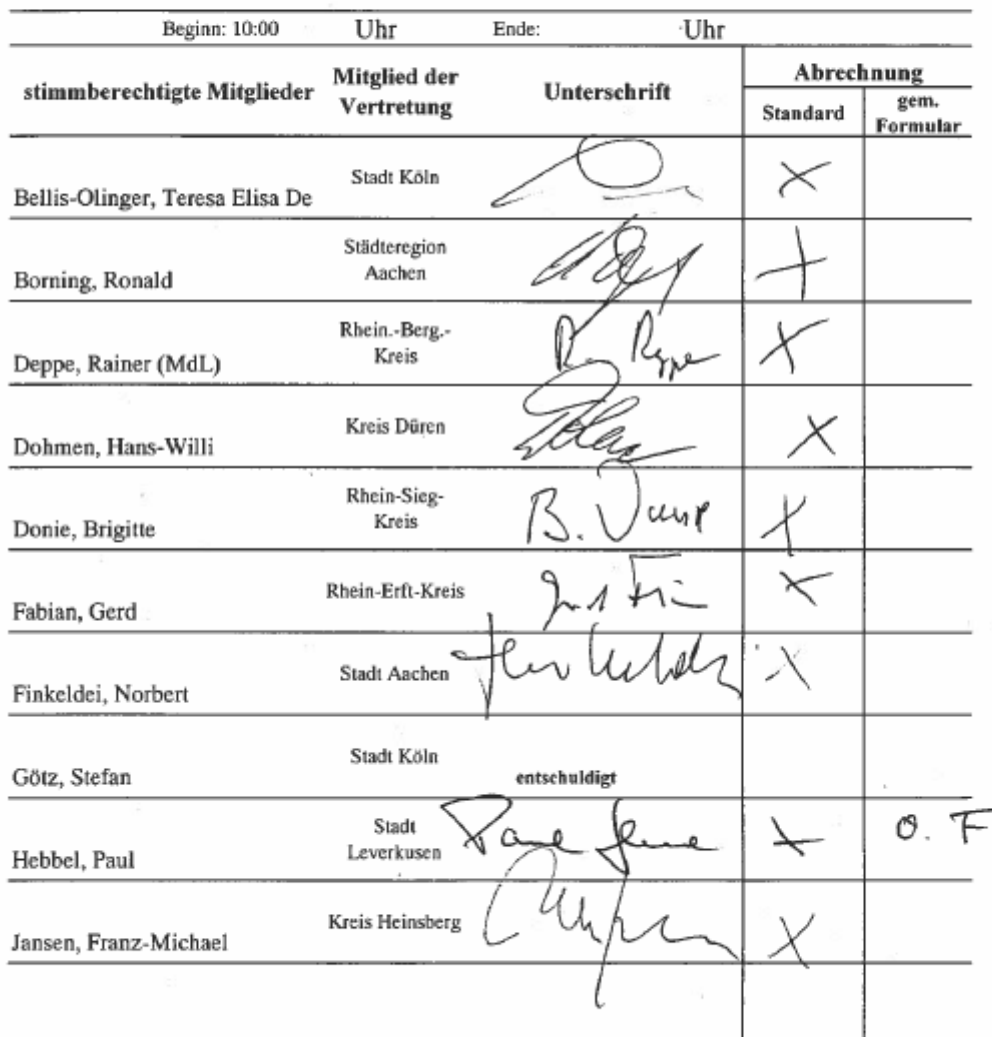 Beginn: 10:00 Uhr Ende: Uhr
stimmberechtigte Mitglieder Mitglied der Vertretung Unterschrift Abrechnung
Standard gem. Formular
Bellis-Olinger, Teresa Elisa De Stadt Köln X
Borning, Ronald Städteregion Aachen X
Deppe, Rainer (MdL) Rhein.-Berg.-Kreis X
Dohmen, Hans-Willi Kreis Düren X
Donie, Brigitte Rhein-Sieg-Kreis B. X
Fabian, Gerd Rhein-Erft-Kreis X
Finkeldei, Norbert Stadt Aachen X
Götz, Stefan Stadt Köln entschuldigt
Hebbel, Paul Stadt Leverkusen Paul X O. F
Jansen, Franz-Michael Kreis Heinsberg X